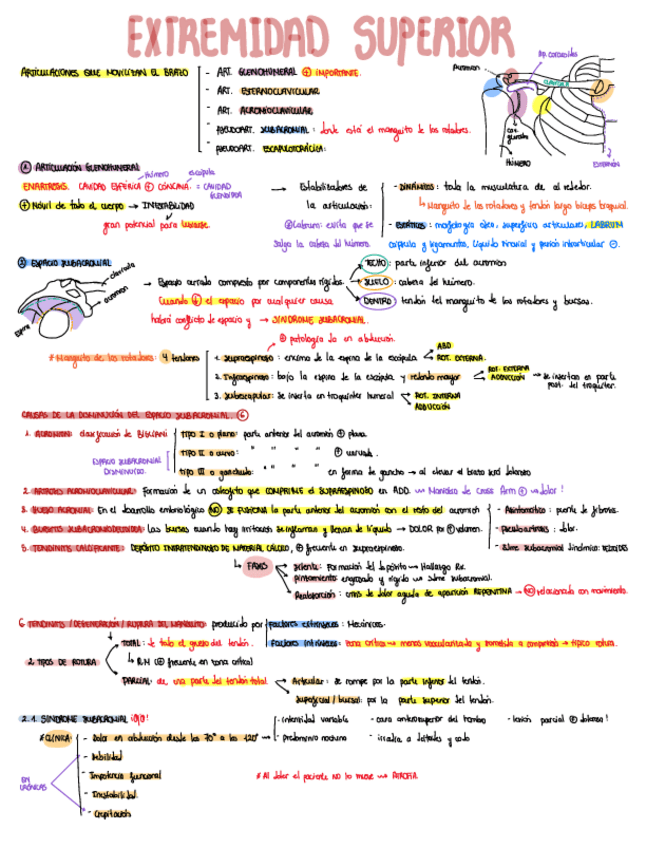 EXTREMIDAD SUPERIOR
ARTICULACIONES QUE MOVILIZAN EL BRAZO
- ART. GLENOHUMERAL + IMPORTANTE.
- ART. ESTERNOCLAVICULAR
- ART. ACROMIOCLAVICULAR
- PSEUDOART. SUBACROMIAL: donde está el manguito de los rotadores.
- PSEUDOART. ESCAPULOTORÁCICA:
Acromion
Ap. coracoides
CLAVÍCULA
HÚMERO
ESTERNÓN
1 ARTICULACIÓN GLENOHUMERAL
húmero escápula
ENARTROSIS. CAVIDAD ESFÉRICA + CÓNCAVA. = CAVIDAD GLENOIDEA
+ Móvil de todo el cuerpo → INESTABILIDAD
gran potencial para luxarse.
→ Estabilizadores de la articulación:
- DINÁMICOS: toda la musculatura de alrededor.
↳ Manguito de los rotadores y tendón largo bíceps braquial.
- ESTÁTICOS: morfología ósea, superficies articulares, LABRUM
cápsula y ligamentos, líquido sinovial y presión intraarticular -.
Labrum: evita que se
salga la cabeza del húmero.
2 ESPACIO SUBACROMIAL
clavícula
acromion
→ Espacio cerrado compuesto por componentes rígidos.
TECHO: parte inferior del acromion
SUELO: cabeza del húmero.
DENTRO: tendón del manguito de los rotadores y bursas.
el espacio por cualquier causa
habrá conflicto de espacio y → SÍNDROME SUBACROMIAL.
+ patología da en abducción.
* Manguito de los rotadores: 4 tendones
1. Supraespinoso: encima de la espina de la escápula
ABD
ROT. EXTERNA.
2. Infraespinoso: bajo la espina de la escápula y redondo mayor
ROT. EXTERNA
ADDUCCIÓN
→ se insertan en parte post. del troquíter.
3. Subescapular: se inserta en troquínter humeral
ROT. INTERNA
ADDUCCIÓN
CAUSAS DE LA DISMINUCIÓN DEL ESPACIO SUBACROMIAL. 6
1. ACROMION: clasificación de BIGLIANI
ESPACIO SUBACROMIAL DISMINUIDO.
TIPO I o plano: parte anterior del acromion + plana.
TIPO II o curvo: " " " + curvada.
TIPO III o ganchudo: " " " en forma de gancho → al elevar el brazo será doloroso
2. ARTROSIS ACROMIOCLAVICULAR: Formación de un osteofito que COMPRIME el SUPRAESPINOSO en ADD. → Maniobra de Cross Arm + → dolor!
3. HUESO ACROMIAL: En el desarrollo embriológico NO SE FUSIONA la parte anterior del acromion con el resto del acromion
- Asintomático: puente de fibrosis.
- Pseudoartrosis: dolor.
4. BURSITIS SUBACROMIODELTOIDEA: Las bursas cuando hay irritación se inflaman y llenan de líquido → DOLOR por + volumen.
5. TENDINITIS CALCIFICANTE: DEPÓSITO INTRATENDINOSO DE MATERIAL CÁLCICO, + frecuente en supraespinoso.
↳ FASES
Silente: Formación del depósito → Hallazgo Rx.
Pinzamiento: engrosado y rígido → sdme subacromial.
Reabsorción: crisis de dolor agudo de aparición REPENTINA → NO relacionado con movimiento.
6. TENDINITIS / DEGENERACIÓN / RUPTURA DEL MANGUITO: producido por
Factores extrínsecos: Mecánicos.
Factores intrínsecos: zona crítica → menos vascularizada y sometida a compresión → típico rotura.
2 TIPOS DE ROTURA
TOTAL: de todo el grosor del tendón.
↳ RM (+ frecuente en zona crítica)
PARCIAL: de una parte del tendón total.
Articular: se rompe por la parte inferior del tendón.
Superficial / bursal: por la parte superior del tendón.
2.1. SÍNDROME SUBACROMIAL ¡OJO!
* CLÍNICA:
- Dolor en abducción desde los 70° a los 120° →
- intensidad variable
- predominio nocturno
- cara anterosuperior del hombro
- irradia a deltoides y codo
- lesión parcial + dolorosa!
- Debilidad
- Impotencia funcional
- Inestabilidad.
- Crepitación
EN CRÓNICAS
* Al doler el paciente NO lo mueve → ATROFIA.